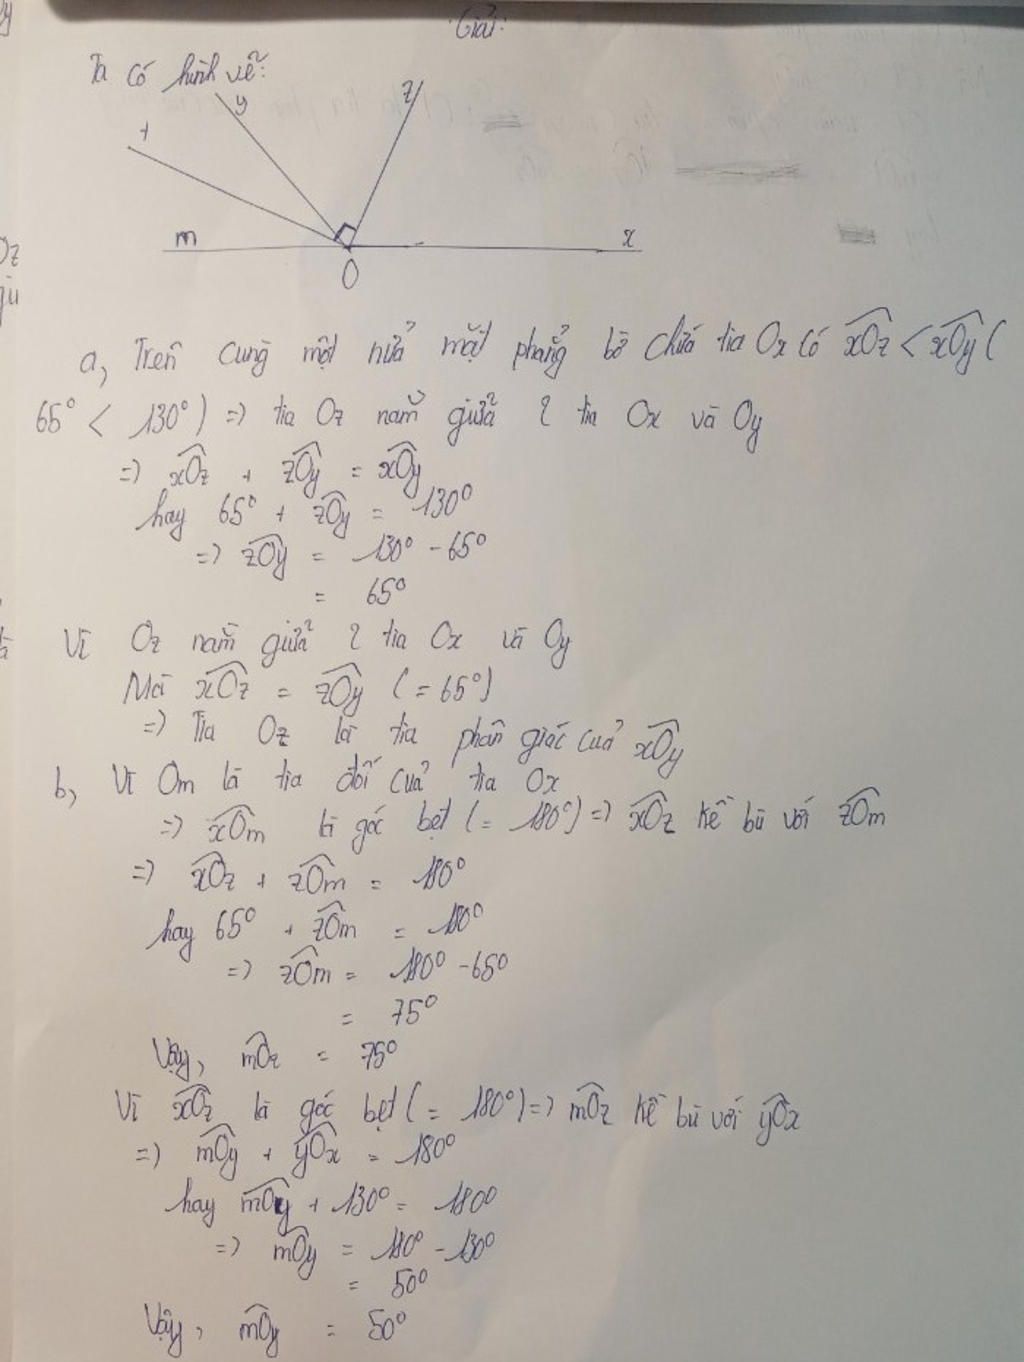 Giải:
Ta có hình vẽ:
y
z
t
m
x
O
Oz
a, Trên cùng một nửa mặt phẳng bờ chứa tia Ox có xOz < xOy (
65° < 130°) => tia Oz nằm giữa 2 tia Ox và Oy
=> xOz + zOy = xOy
hay 65° + zOy = 130°
=> zOy = 130° - 65°
= 65°
Vì Oz nằm giữa 2 tia Ox và Oy
Mà xOz = zOy (= 65°)
=> Tia Oz là tia phân giác của xOy
b, Vì Om là tia đối của tia Ox
=> xOm là góc bẹt (= 180°) => xOz kề bù với zOm
=> xOz + zOm = 180°
hay 65° + zOm = 180°
=> zOm = 180° - 65°
= 75°
Vậy, mOz = 75°
Vì xOz là góc bẹt (= 180°) => mOz kề bù với yOx
=> mOy + yOx = 180°
hay mOy + 130° = 180°
=> mOy = 180° - 130°
= 50°
Vậy, mOy = 50°